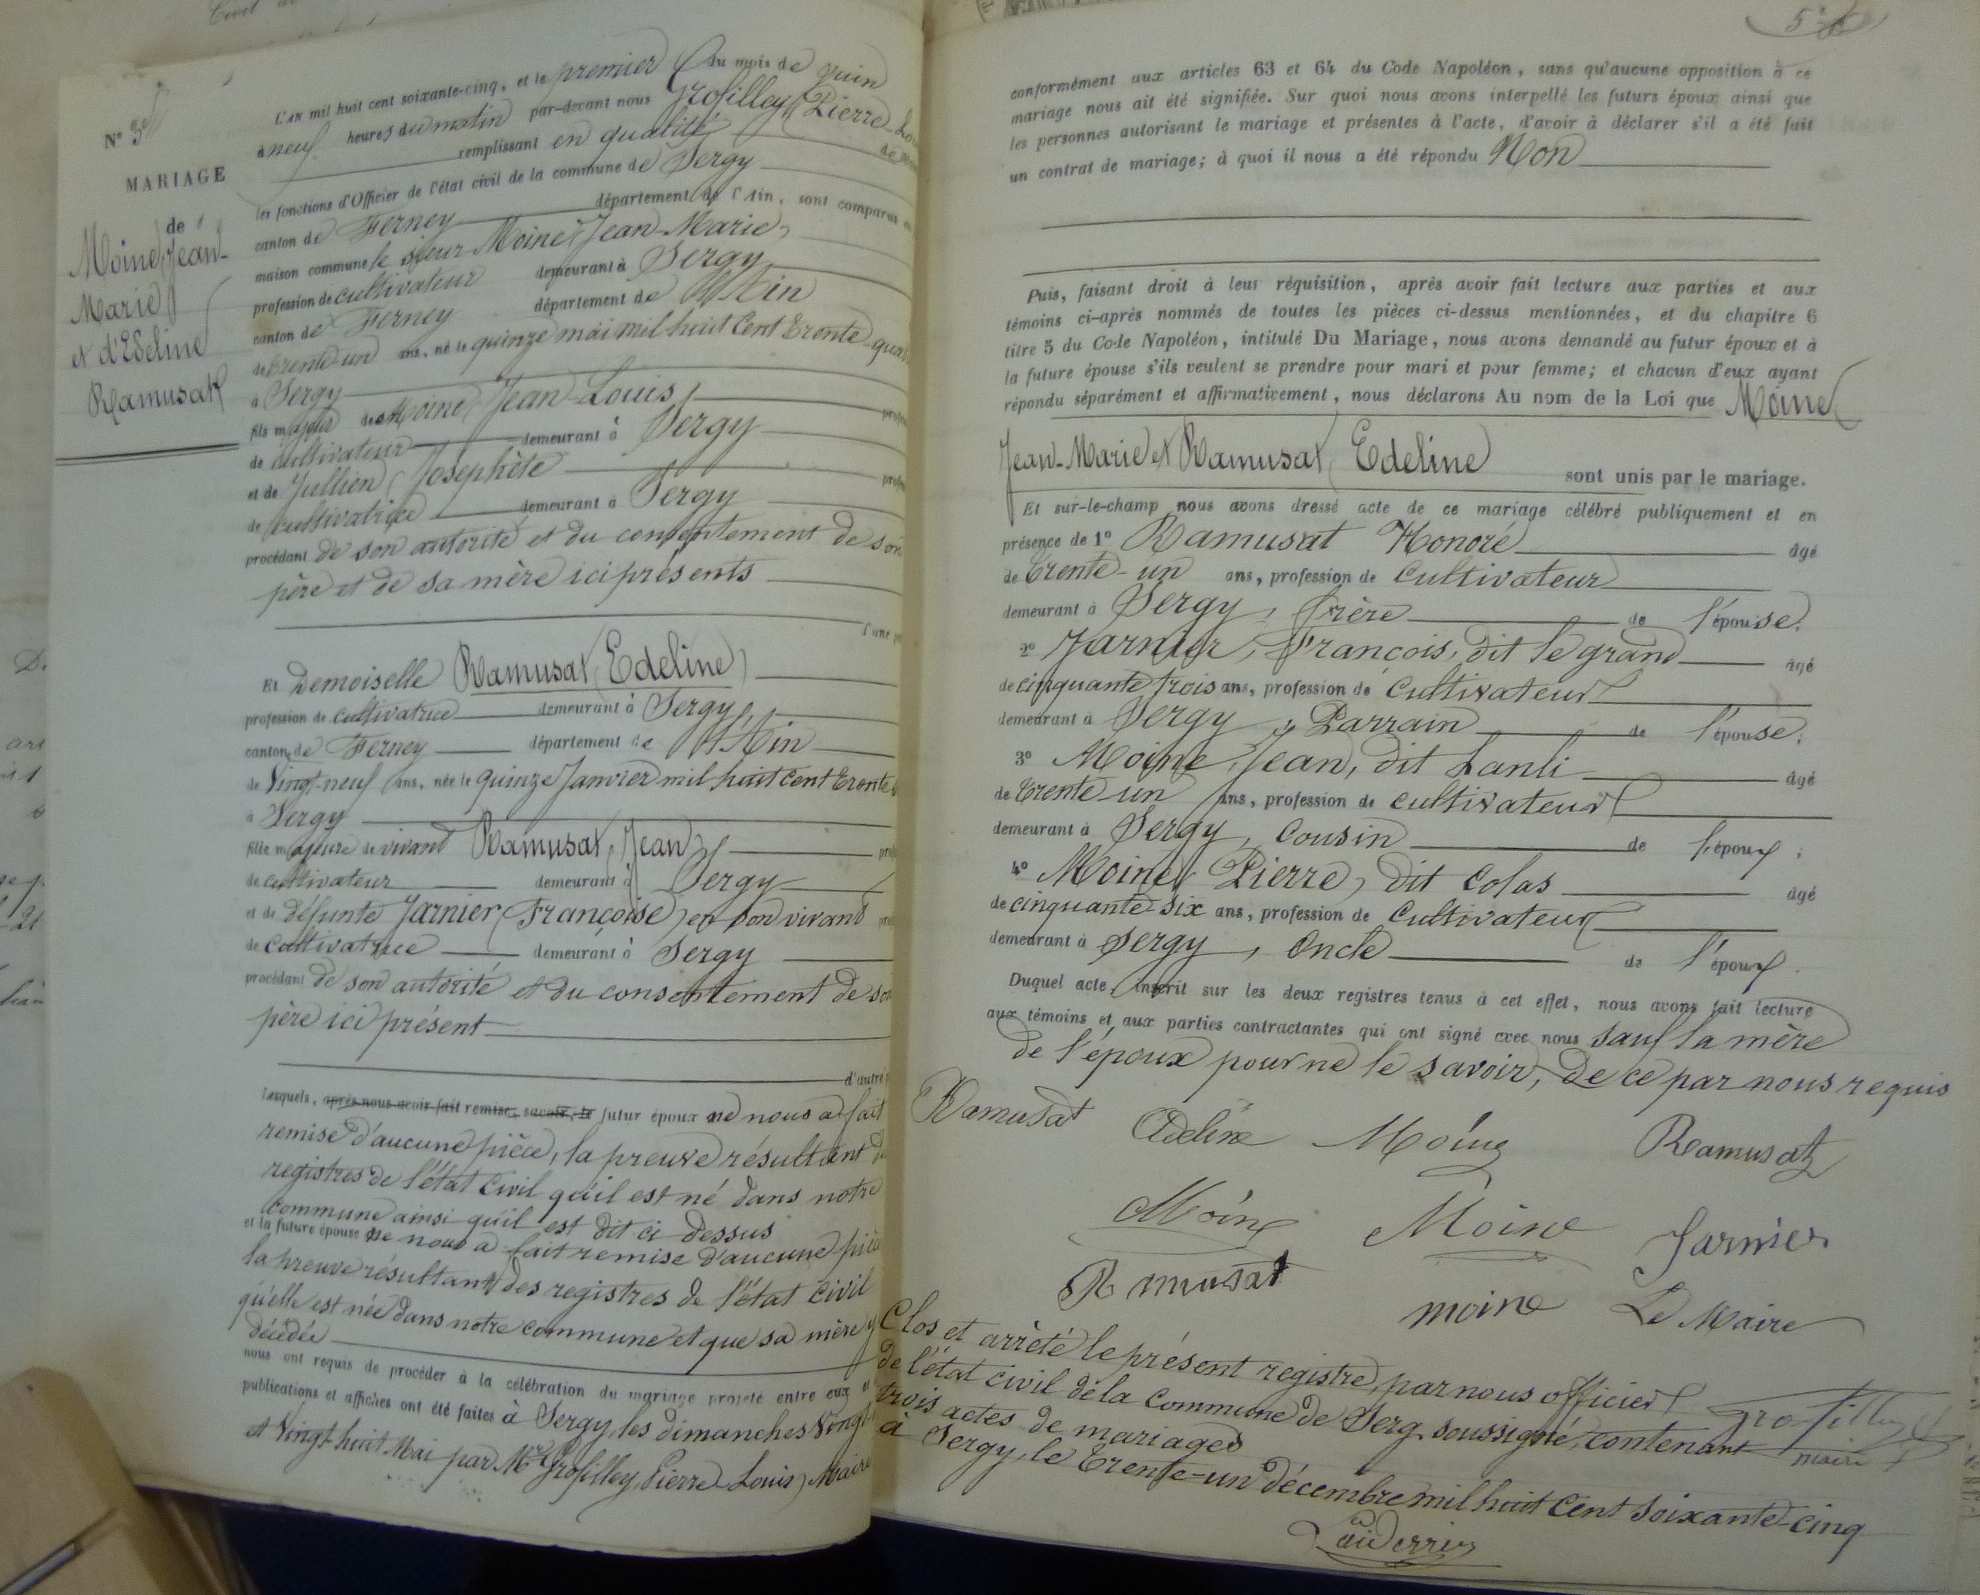 N° 3
MARIAGE
de
Moine Jean-
Marie
et d'Edeline
Ramusat
L'an mil huit cent soixante-cinq, et le premier du mois de juin
à neuf heures du matin par-devant nous Grosfilley Pierre-
remplissant en qualité de
les fonctions d'Officier de l'état civil de la commune de Sergy
canton de Ferney département de l'Ain, sont comparus
maison commune le sieur Moine Jean-Marie,
profession de cultivateur demeurant à Sergy
canton de Ferney département de l'Ain
de trente-un ans, né le quinze mai mil huit cent trente-
à Sergy
fils majeur de Moine Jean-Louis,
de cultivateur demeurant à Sergy
et de Jullien Josephète
de cultivatrice demeurant à Sergy
procédant de son autorité et du consentement de son
père et de sa mère ici présents
l'une
Et Demoiselle Ramusat Edeline
profession de cultivatrice demeurant à Sergy,
canton de Ferney département de l'Ain
de vingt-neuf ans, née le quinze Janvier mil huit cent trente-
à Sergy
fille majeure de vivant Ramusat, Jean
de cultivateur demeurant à Sergy
et de défunte Jarnier Françoise, en son vivant
de cultivatrice demeurant à Sergy
procédant de son autorité et du consentement de son
père ici présent
d'autre
Lesquels, après nous avoir fait remise, savoir, le futur époux ne nous a fait
remise d'aucune pièce, la preuve résultant
registres de l'état civil qu'il est né dans notre
commune ainsi qu'il est dit ci dessus
et la future épouse ne nous a fait remise d'aucune
la preuve résultant des registres de l'état civil
qu'elle est née dans notre commune et que sa mère y
décédée
nous ont requis de procéder à la célébration du mariage projeté entre eux
publications et affiches ont été faites à Sergy, les dimanches vingt-
et vingt-huit Mai par Mr Grosfilley Pierre-Louis, Maire
conformément aux articles 63 et 64 du Code Napoléon, sans qu'aucune opposition à ce
mariage nous ait été signifiée. Sur quoi nous avons interpellé les futurs époux ainsi que
les personnes autorisant le mariage et présentes à l'acte, d'avoir à déclarer s'il a été fait
un contrat de mariage; à quoi il nous a été répondu Non
Puis, faisant droit à leur réquisition, après avoir fait lecture aux parties et aux
témoins ci-après nommés de toutes les pièces ci-dessus mentionnées, et du chapitre 6
titre 5 du Code Napoléon, intitulé Du Mariage, nous avons demandé au futur époux et à
la future épouse s'ils veulent se prendre pour mari et pour femme; et chacun d'eux ayant
répondu séparément et affirmativement, nous déclarons Au nom de la Loi que Moine
Jean-Marie et Ramusat Edeline sont unis par le mariage.
Et sur-le-champ nous avons dressé acte de ce mariage célébré publiquement et en
présence de 1° Ramusat Honoré âgé
de trente-un ans, profession de cultivateur
demeurant à Sergy, frère de l'épouse.
2° Jarnier, François, dit le grand âgé
de cinquante trois ans, profession de cultivateur
demeurant à Sergy, Parrain de l'épouse;
3° Moine, Jean, dit Lanli âgé
de trente-un ans, profession de cultivateur
demeurant à Sergy, cousin de l'époux;
4° Moine Pierre, dit Colas âgé
de cinquante-six ans, profession de cultivateur
demeurant à Sergy, Oncle de l'époux.
Duquel acte, inscrit sur les deux registres tenus à cet effet, nous avons fait lecture
aux témoins et aux parties contractantes qui ont signé avec nous sauf la mère
de l'époux pour ne le savoir, de ce par nous requis
Ramusat Edeline Moine Ramusat
Moine Moine Jarnier
Ramusat moine Le Maire
Clos et arrêté le présent registre, par nous officier
de l'état civil de la commune de Sergy soussigné, contenant Grosfilley
trois actes de mariages maire
à Sergy, le trente-un décembre mil huit cent soixante-cinq